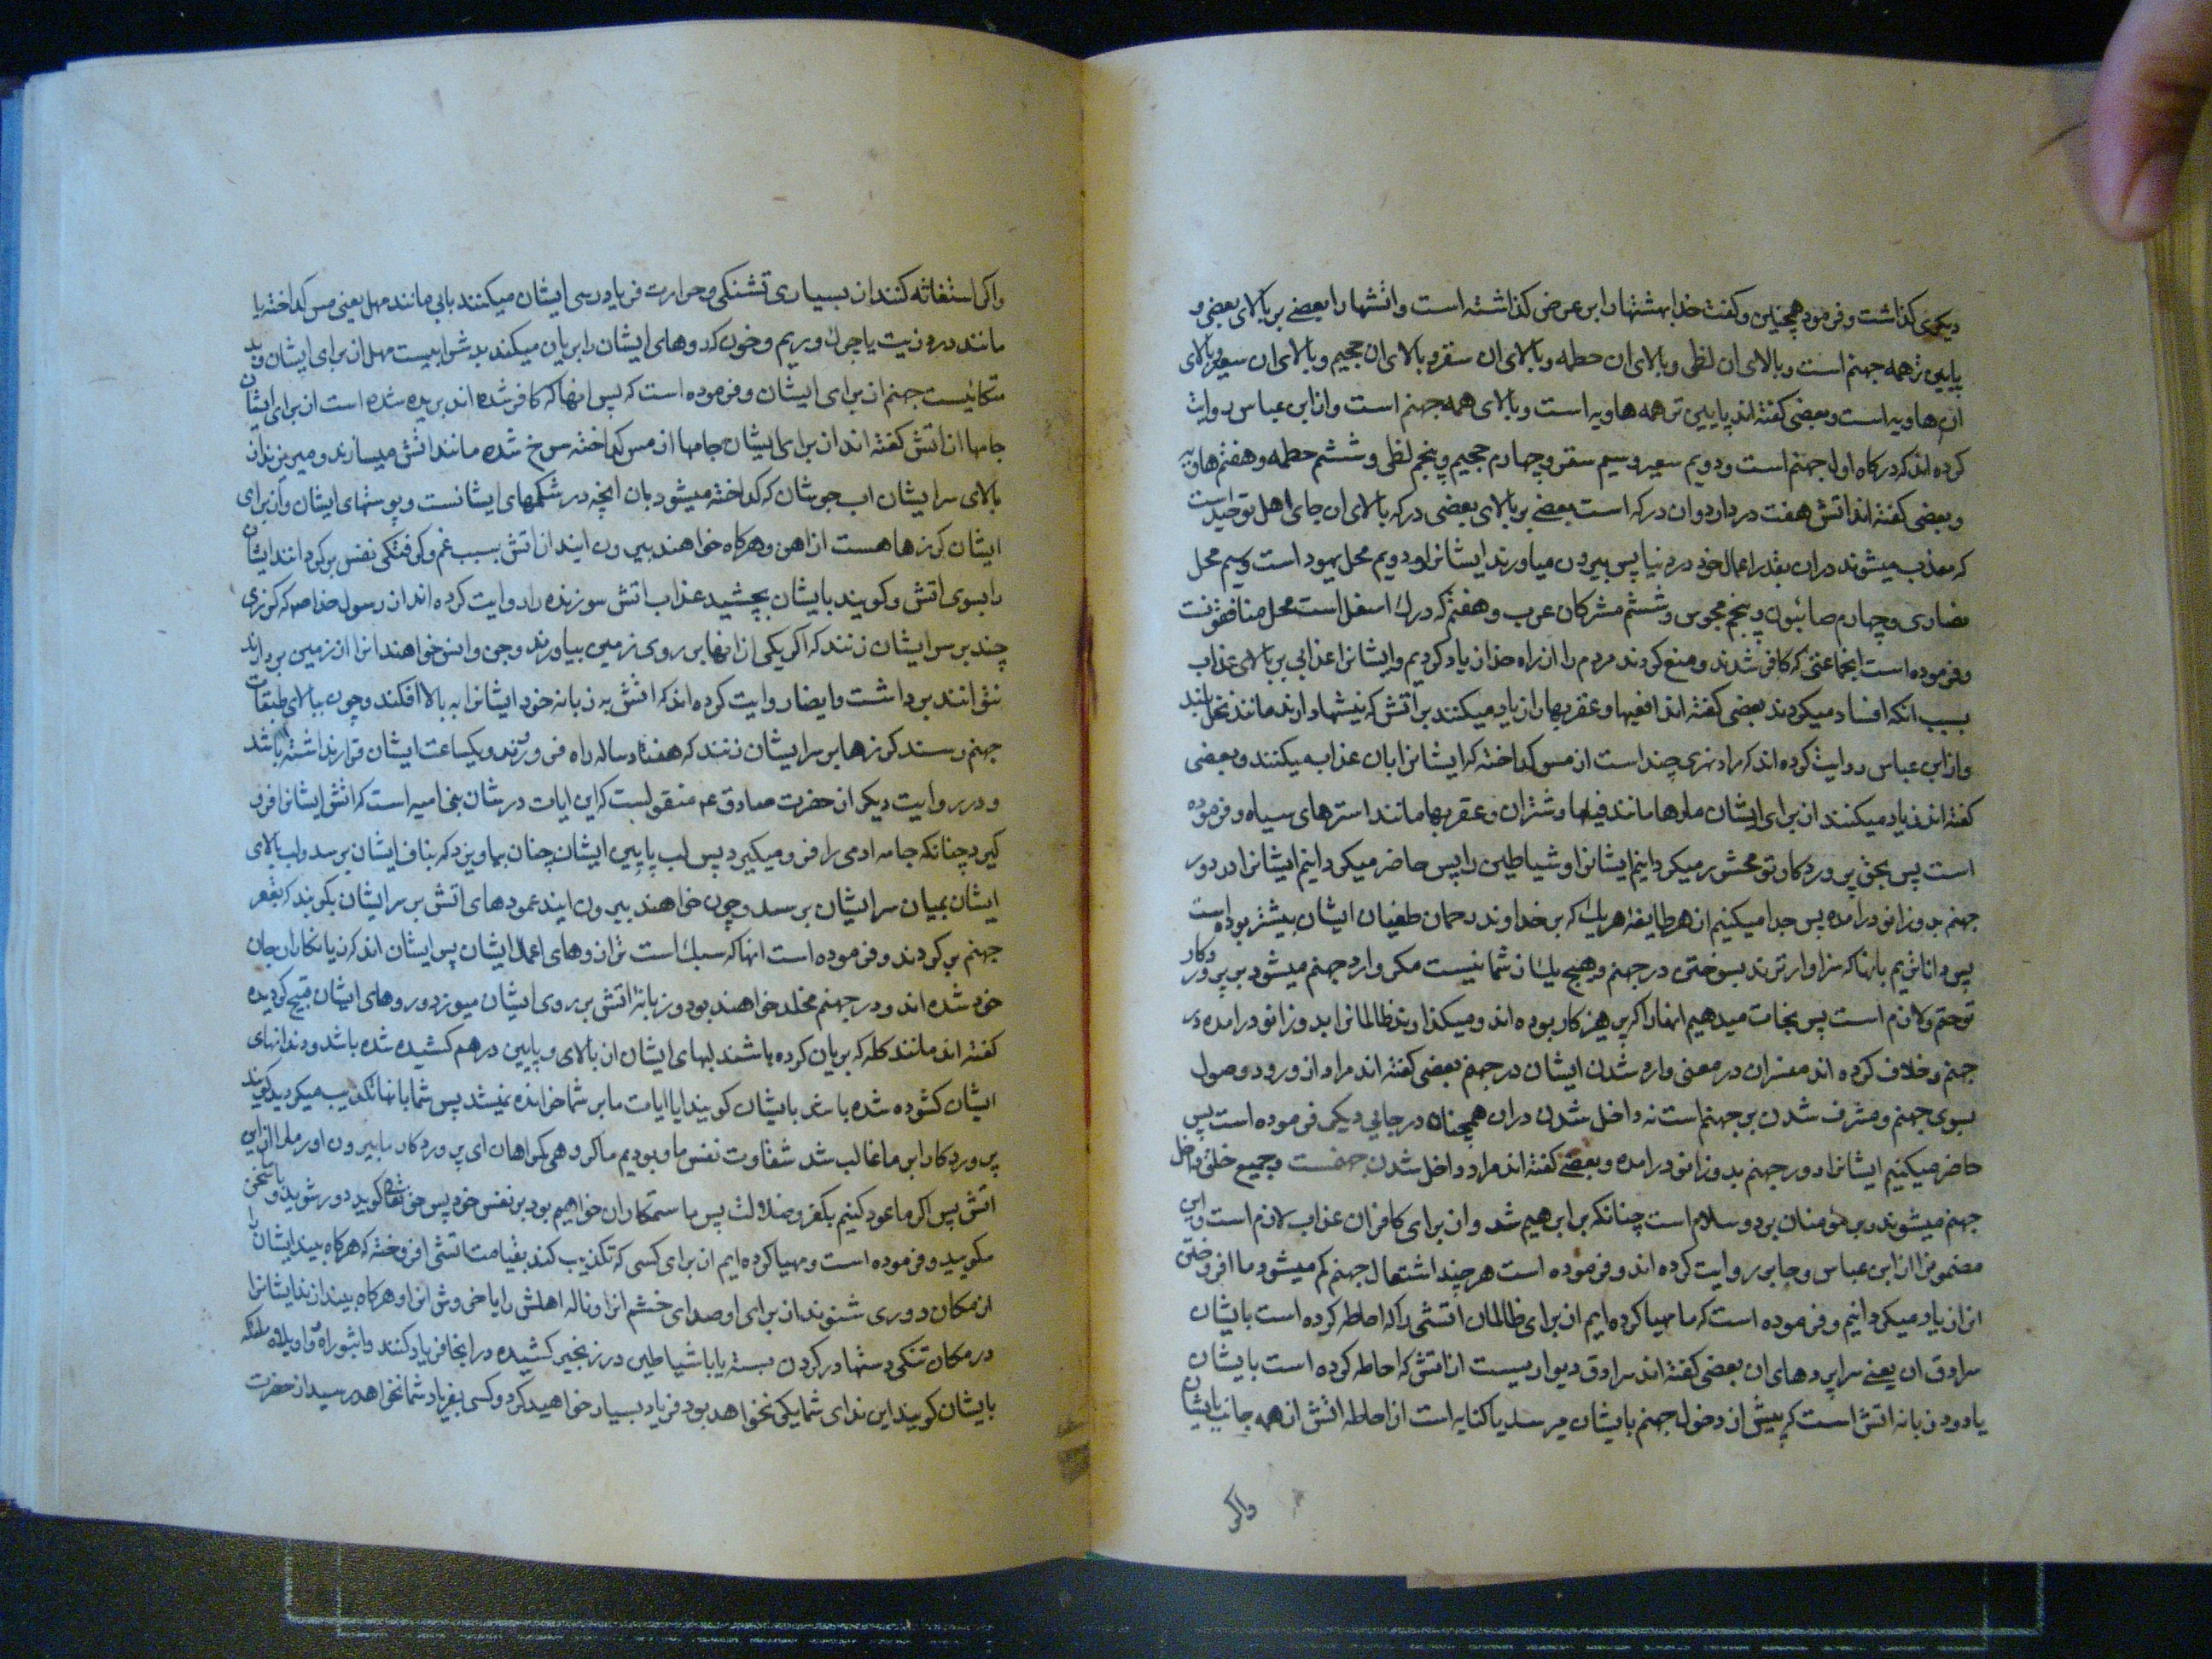 دیکری کذاشت و فرمود همچنین و کفت خدا بهشتها را بر عرض کذاشته است و اتشها را بعضے بر بالای بعضی و
پایین تر همه جهنم است و بالای ان لظی و بالای ان حطمه و بالای ان سقر و بالای ان جحیم و بالای ان سعیر و بالای
ان هاویه است و بعضی کفته اند پایین تر همه هاویه است و بالای همه جهنم است و از ابن عباس روایت
کرده اند که درکاه اول جهنم است و دویم سعیر و سیم سقر و چهارم جحیم و پنجم لظی و ششم حطمه و هفتم هاویه
و بعضی کفته اند اتش هفت در دارد و ان درکه است بعضے بر بالای بعضی درکه بالای ان جای اهل توحید است
که معذب میشوند در ان بقدر اعمال خود در دنیا پس بیرون میاورند ایشانرا و دویم محل یهود است و سیم محل
نصاری و چهارم صابئون و پنجم مجوس و ششم مشرکان عرب و هفتم که درك اسفل است محل منافقونت
و فرموده است انجماعتی که کافر شدند و منع کردند مردم را از راه خدا زیاد کردیم و ایشانرا عذابی بر بالای عذاب
بسبب انکه افساد میکردند بعضی کفته اند افعیها و عقربها را زیاد میکنند بر اتش که نیشها دارند مانند نخل بلند
و از ابن عباس روایت کرده اند که مراد نهری چند است از مس کداخته که ایشانرا بان عذاب میکنند و بعضی
کفته اند زیاد میکنند از برای ایشان مارها مانند فیلها و شتران و عقربها مانند استرهای سیاه و فرموده
است پس بحق پرورد کار تو محشور میکردانیم ایشانرا و شیاطین را پس حاضر میکردانیم ایشانرا در دور
جهنم بدو زانو درآمده پس جدا میکنیم از هر طایفه هریك که بر خداوند رحمان طغیان ایشان بیشتر بوده است
پس داناتریم بانها که سزاوارترند بسوختن در جهنم و هیچ یك از شما نیست مکر وارد جهنم میشود بر پروردکار
تو حتم و لازم است پس نجات میدهیم انها را که پرهیزکار بوده اند و میکذاریم ظالمانرا بدو زانو درامده در
جهنم و خلاف کرده اند مفسران در معنی وارد شدن ایشان در جهنم بعضی کفته اند مراد از ورود وصول
بسوی جهنم و مشرف شدن بر جهنم است نه داخل شدن در ان همچنان در جایی دیکر فرموده است پس
حاضر میکنیم ایشانرا دور جهنم بدو زانو درامده و بعضے کفته اند مراد داخل شدن جهنمست و جمیع خلق داخل
جهنم میشوند و بر مومنان برد و سلام است چنانکه بر ابرهیم شد و از برای کافران عذاب لازم است و این
مضمونرا از ابن عباس و جابر روایت کرده اند و فرموده است هر چند اشتعال جهنم کم میشود ما افروختن
انرا زیاد میکردانیم و فرموده است که ما مهیا کرده ایم از برای ظالمان اتشی را که احاطه کرده است بایشان
سرادق ان یعنے سراپردهای ان بعضی کفته اند سرادق دیواریست از اتش که احاطه کرده است بایشان
یا دود و زبانه اتش است که پیش از دخول جهنم بایشان میرسد یا کنایه است از احاطه اتش از همه جانب بایشان
واکر
واکر استغاثه کنند از بسیاری تشنکی و حرارت فریاد رسی ایشان میکنند بابی مانند مهل یعنی مس کداخته یا
مانند درد زیت یا چرك و ریم و خون که روهای ایشان را بریان میکند بد شرابیست مهل از برای ایشان و بد
متکائیست جهنم از برای ایشان و فرموده است که پس انها که کافر شده اند بریده شده است از برای ایشان
جامها از اتش کفته اند از برای ایشان جامها از مس کداخته سرخ شده مانند اتش میسازند و میریزند از
بالای سر ایشان اب جوشان که کداخته میشود بان انچه در شکمهای ایشانست و پوستهای ایشان و از برای
ایشان کرزها هست از اهن و هرکاه خواهند بیرون ایند از اتش بسبب غم و کرفتکی نفس برکردانند ایشان
را بسوی اتش و کویند بایشان بچشید عذاب اتش سوزنده را روایت کرده اند از رسول خدا ص که کرزی
چند بر سر ایشان زنند که اکر یکی از انها بر روی زمین بیاورند و جن و انس خواهند انرا از زمین بردارند
نتوانند برداشت و ایضا روایت کرده اند که اتش به زبانه خود ایشانرا به بالا افکند و چون ببالای طبقات
جهنم رسند کرزها بر سر ایشان زنند که هفتاد ساله راه فرو روند و یکساعت ایشان قرار نداشته باشد
و در روایت دیکر از حضرت صادق ع منقولست که این ایات در شان بنی امیه است که اتش ایشانرا فرو
کیرد چنانکه جامه ادمی را فرو میکیرد پس لب پایین ایشان چنان بیاویزد که بناف ایشان برسد و لب بالای
ایشان بمیان سر ایشان برسد و چون خواهند بیرون ایند عمودهای اتش بر سر ایشان بکوبند که بقعر
جهنم برکردند و فرموده است انها که سبك است ترازوهای اعمال ایشان پس ایشان اند که زیانکاران جان
خود شده اند و در جهنم مخلد خواهند بود و زبانه اتش بر روی ایشان میوزد و روهای ایشان قبیح کردیده
کفته اند مانند کله که بریان کرده باشند لبهای ایشان از بالای و پایین درهم کشیده شده باشد و دندانهای
ایشان کشوده شده باشد بایشان کویند ایا ایات ما بر شما خوانده نمیشد پس شما بانها تکذیب میکردید کویند
پروردکارا بر ما غالب شد شقاوت نفس ما و بودیم ما کروهی کمراهان ای پروردکار ما بیرون اور ما را از این
اتش پس اکر ما عود کنیم بکفر و ضلالت پس ما ستمکاران خواهیم بود بر نفس خود پس حق تعالی کوید دور شوید و با من سخن
مکویید و فرموده است و مهیا کرده ایم از برای کسی که تکذیب کند بقیامت اتشی افروخته که هرکاه بیند ایشان را
از مکان دوری شنوند از برای او صدای خشم انرا و ناله اهلش را یا خروش انرا و هرکاه بیندازند ایشانرا
در مکان تنکی دستها در کردن بسته یا با شیاطین در زنجیر کشیده در انجا فریاد کنند واثبوراه و اویلاه ملئکه
بایشان کویند این ندای شما یکی نخواهد بود فریاد بسیار خواهید کرد و کسی بفریاد شما نخواهد رسید از حضرت